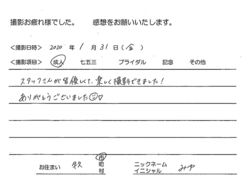 撮影お疲れ様でした。　感想をお願いいたします。
<撮影日時> 2020 年 1 月 31 日 (金)
<撮影項目> 成人 七五三 ブライダル 記念 その他
スタッフさんが皆優しくて、楽しく撮影できました!
ありがとうございました♡
お住まい 町村 ニックネーム イニシャル